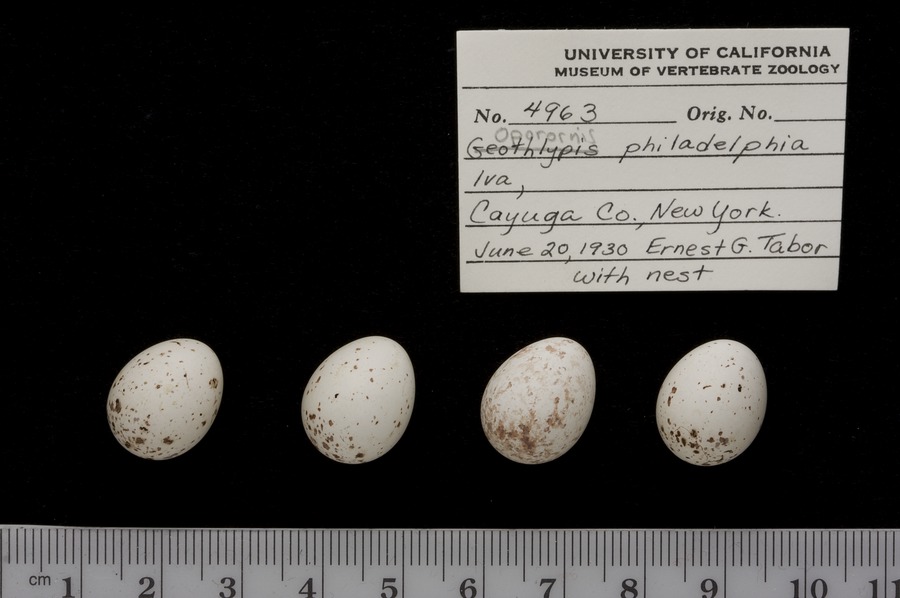 UNIVERSITY OF CALIFORNIA
MUSEUM OF VERTEBRATE ZOOLOGY
No. 4963 Orig. No.
Oporornis
Geothlypis philadelphia
Ira,
Cayuga Co., New York.
June 20, 1930 Ernest G. Tabor
with nest
cm 1 2 3 4 5 6 7 8 9 10 11